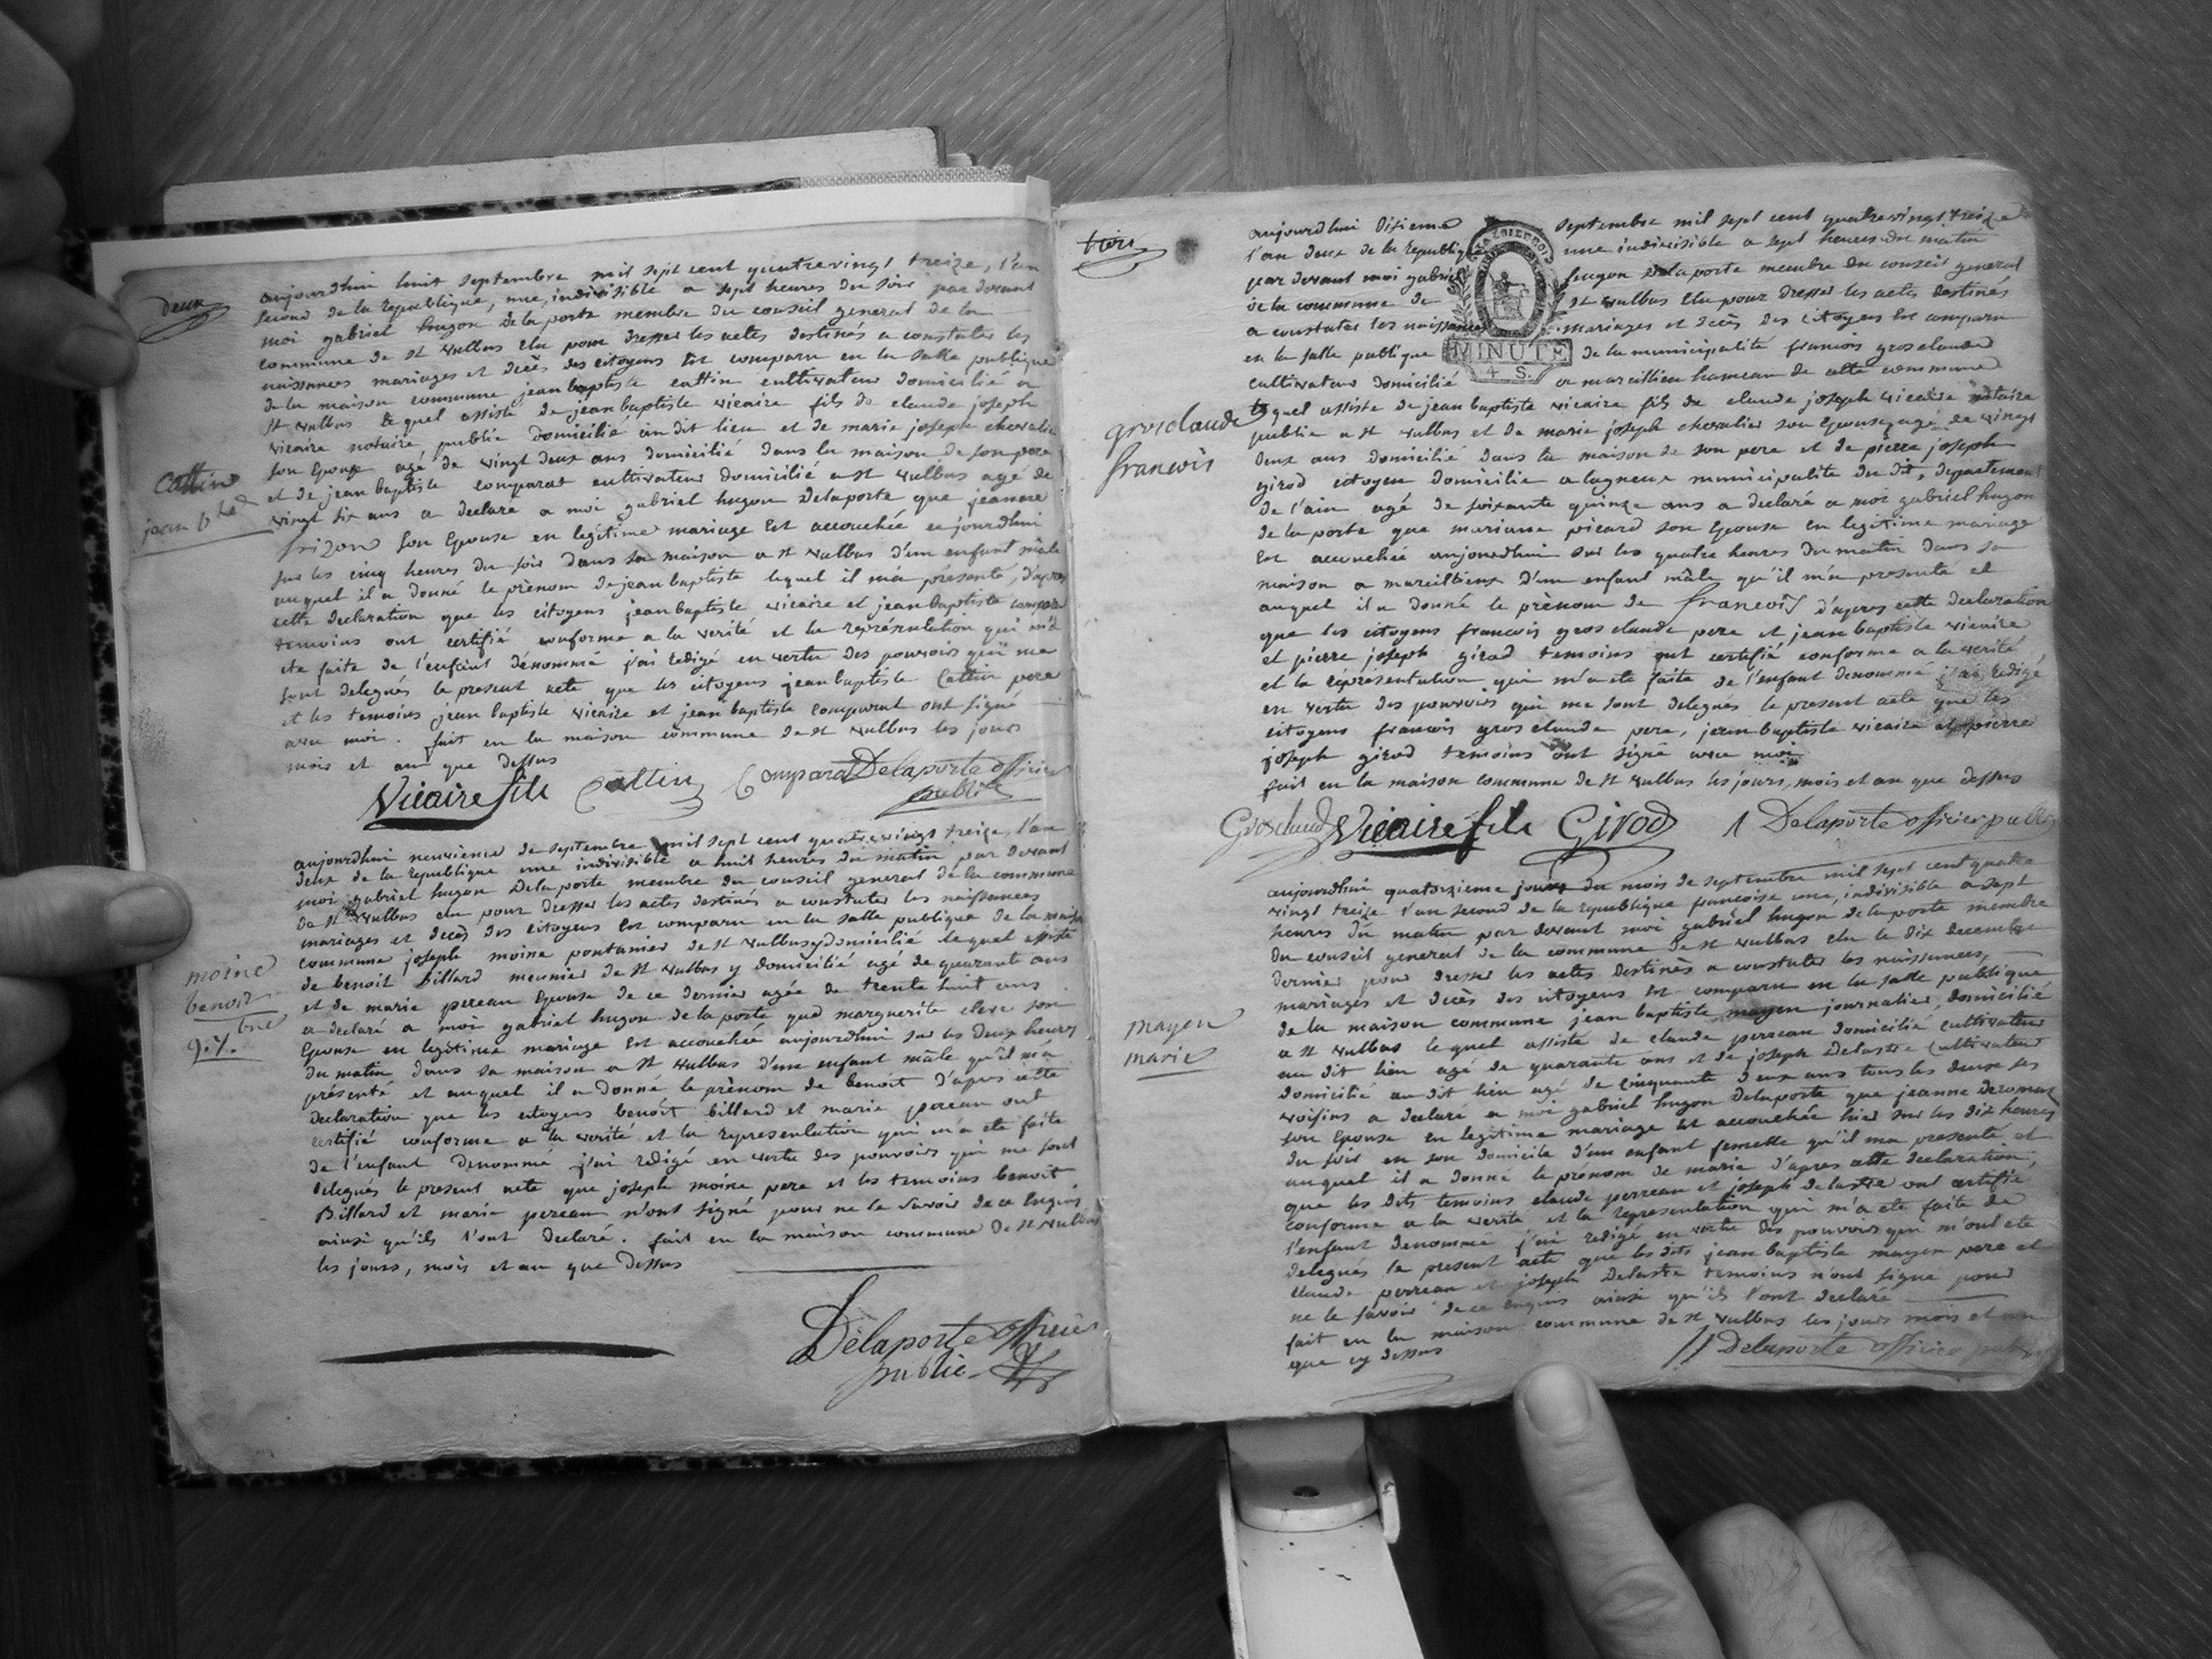 deux
aujourdhui huit septembre mil sept cent quatrevingt treize, l'an
second de la republique, une, indivisible a sept heures du soir par devant
moi gabriel hugon delaporte membre du conseil general de la
commune de st vulbas elu pour dresser les actes destinés a constater les
naissances mariages et décès des citoyens est comparu en la salle publique
de la maison commune jean baptiste cattin cultivateur domicilié a
st vulbas lequel assisté de jean baptiste vicaire fils de claude joseph
vicaire notaire public domicilié au dit lieu et de marie joseph chevalier
son epouse agé de vingt deux ans domicilié dans la maison de son pere
et de jean baptiste comparat cultivateur domicilié a st vulbas agé de
vingt six ans a declaré a moi gabriel hugon delaporte que jeanne
frizon son epouse en legitime mariage est accouchée ce jourdhui
sur les cinq heures du soir dans sa maison a st vulbas d'un enfant mâle
auquel il a donné le prénom de jean baptiste lequel il m'a présenté, d'apres
cette declaration que les citoyens jean baptiste vicaire et jean baptiste comparat
temoins ont certifié conforme a la verité et la représentation qui m'a
ete faite de l'enfant dénommé j'ai redigé en vertu des pouvoirs qui me
sont delegués le present acte que les citoyens jean baptiste Cattin pere
et les temoins jean baptiste vicaire et jean baptiste comparat ont signé
avec moi. fait en la maison commune de st vulbas les jours
mois et an que dessus
Cattin
jean bte
Vicaire fils Cattin Comparat Delaporte officier
public
aujourdhui neuvieme de septembre mil sept cent quatrevingt treize, l'an
deux de la republique une indivisible a huit heures du matin par devant
moi gabriel hugon delaporte membre du conseil general de la commune
de st vulbas elu pour dresser les actes destinés a constater les naissances
mariages et décès des citoyens est comparu en la salle publique de la maison
commune joseph moine pontanier de st vulbas y domicilié lequel assisté
de benoit billard meunier de st vulbas y domicilié agé de quarante ans
et de marie pereau epouse de ce dernier agée de trente huit ans
a declaré a moi gabriel hugon delaporte que marguerite cleve son
epouse en legitime mariage est accouchée aujourdhui sur les deux heures
du matin dans sa maison a st vulbas d'un enfant mâle qu'il m'a
présenté et auquel il a donné le prénom de benoit d'apres cette
declaration que les citoyens benoit billard et marie pereau ont
certifié conforme a la verité et la representation qui m'a ete faite
de l'enfant denommé j'ai redigé en vertu des pouvoirs qui me sont
delegués le present acte que joseph moine pere et les temoins benoit
Billard et marie pereau n'ont signé pour ne le savoir de ce enquis
ainsi qu'ils l'ont declaré. fait en la maison commune de st vulbas
les jours, mois et an que dessus
moine
benoit
Delaporte officier
public
trois
aujourdhui dixieme septembre mil sept cent quatrevingt treize
l'an deux de la republique une indivisible a sept heures du matin
par devant moi gabriel hugon delaporte membre du conseil general
de la commune de st vulbas elu pour dresser les actes destinés
a constater les naissances mariages et décès des citoyens est comparu
en la salle publique de la municipalité francois grosclaude
MINUTE
4. S.
cultivateur domicilié a marcillieu hameau de cette commune
lequel assisté de jean baptiste vicaire fils de claude joseph vicaire notaire
public a st vulbas et de marie joseph chevalier son epouse agé de vingt
deux ans domicilié dans la maison de son pere et de pierre joseph
girod citoyen domicilié a lagneux municipalité du dit, departement
de l'ain agé de soixante quinze ans a declaré a moi gabriel hugon
de la porte que mariane picard son epouse en legitime mariage
est accouchée aujourdhui sur les quatre heures du matin dans sa
maison a marcillieux d'un enfant mâle qu'il m'a presenté et
auquel il a donné le prénom de francois d'apres cette declaration
que les citoyens francois gros claude pere et jean baptiste vicaire
et pierre joseph girod temoins ont certifié conforme a la verité
et la représentation qui m'a ete faite de l'enfant denommé j'ai redigé
en vertu des pouvoirs qui me sont delegués le present acte que les
citoyens francois gros claude pere, jean baptiste vicaire et pierre
joseph girod temoins ont signé avec moi
fait en la maison commune de st vulbas les jours, mois et an que dessus
grosclaude
francois
Grosclaude Vicaire fils Girod Delaporte officier public
aujourdhui quatorzieme jour du mois de septembre mil sept cent quatre
vingt treize l'an second de la republique francoise une, indivisible a sept
heures du matin par devant moi gabriel hugon delaporte membre
du conseil general de la commune de st vulbas elu le dix decembre
dernier pour dresser les actes destinés a constater les naissances,
mariages et décès des citoyens est comparu en la salle publique
de la maison commune jean baptiste mayen journalier domicilié
a st vulbas lequel assisté de claude perreau domicilié cultivateur
au dit lieu agé de quarante ans et de joseph delastre cultivateur
domicilié au dit lieu agé de cinquante deux ans tous les deux ses
voisins a declaré a moi gabriel hugon delaporte que jeanne
son epouse en legitime mariage est accouchée hier sur les dix heures
du soir en son domicile d'un enfant femelle qu'il m'a presenté et
auquel il a donné le prénom de marie d'apres cette declaration,
que les dits temoins claude perreau et joseph delastre ont certifié
conforme a la verité et la representation qui m'a ete faite de
l'enfant denommé j'ai redigé en vertu des pouvoirs qui m'ont ete
delegués le present acte que les dits jean baptiste mayen pere et
claude perreau et joseph delastre temoins n'ont signé pour
ne le savoir de ce enquis ainsi qu'ils l'ont declaré
fait en la maison commune de st vulbas les jours mois et an
que cy dessus
mayen
marie
Delaporte officier public